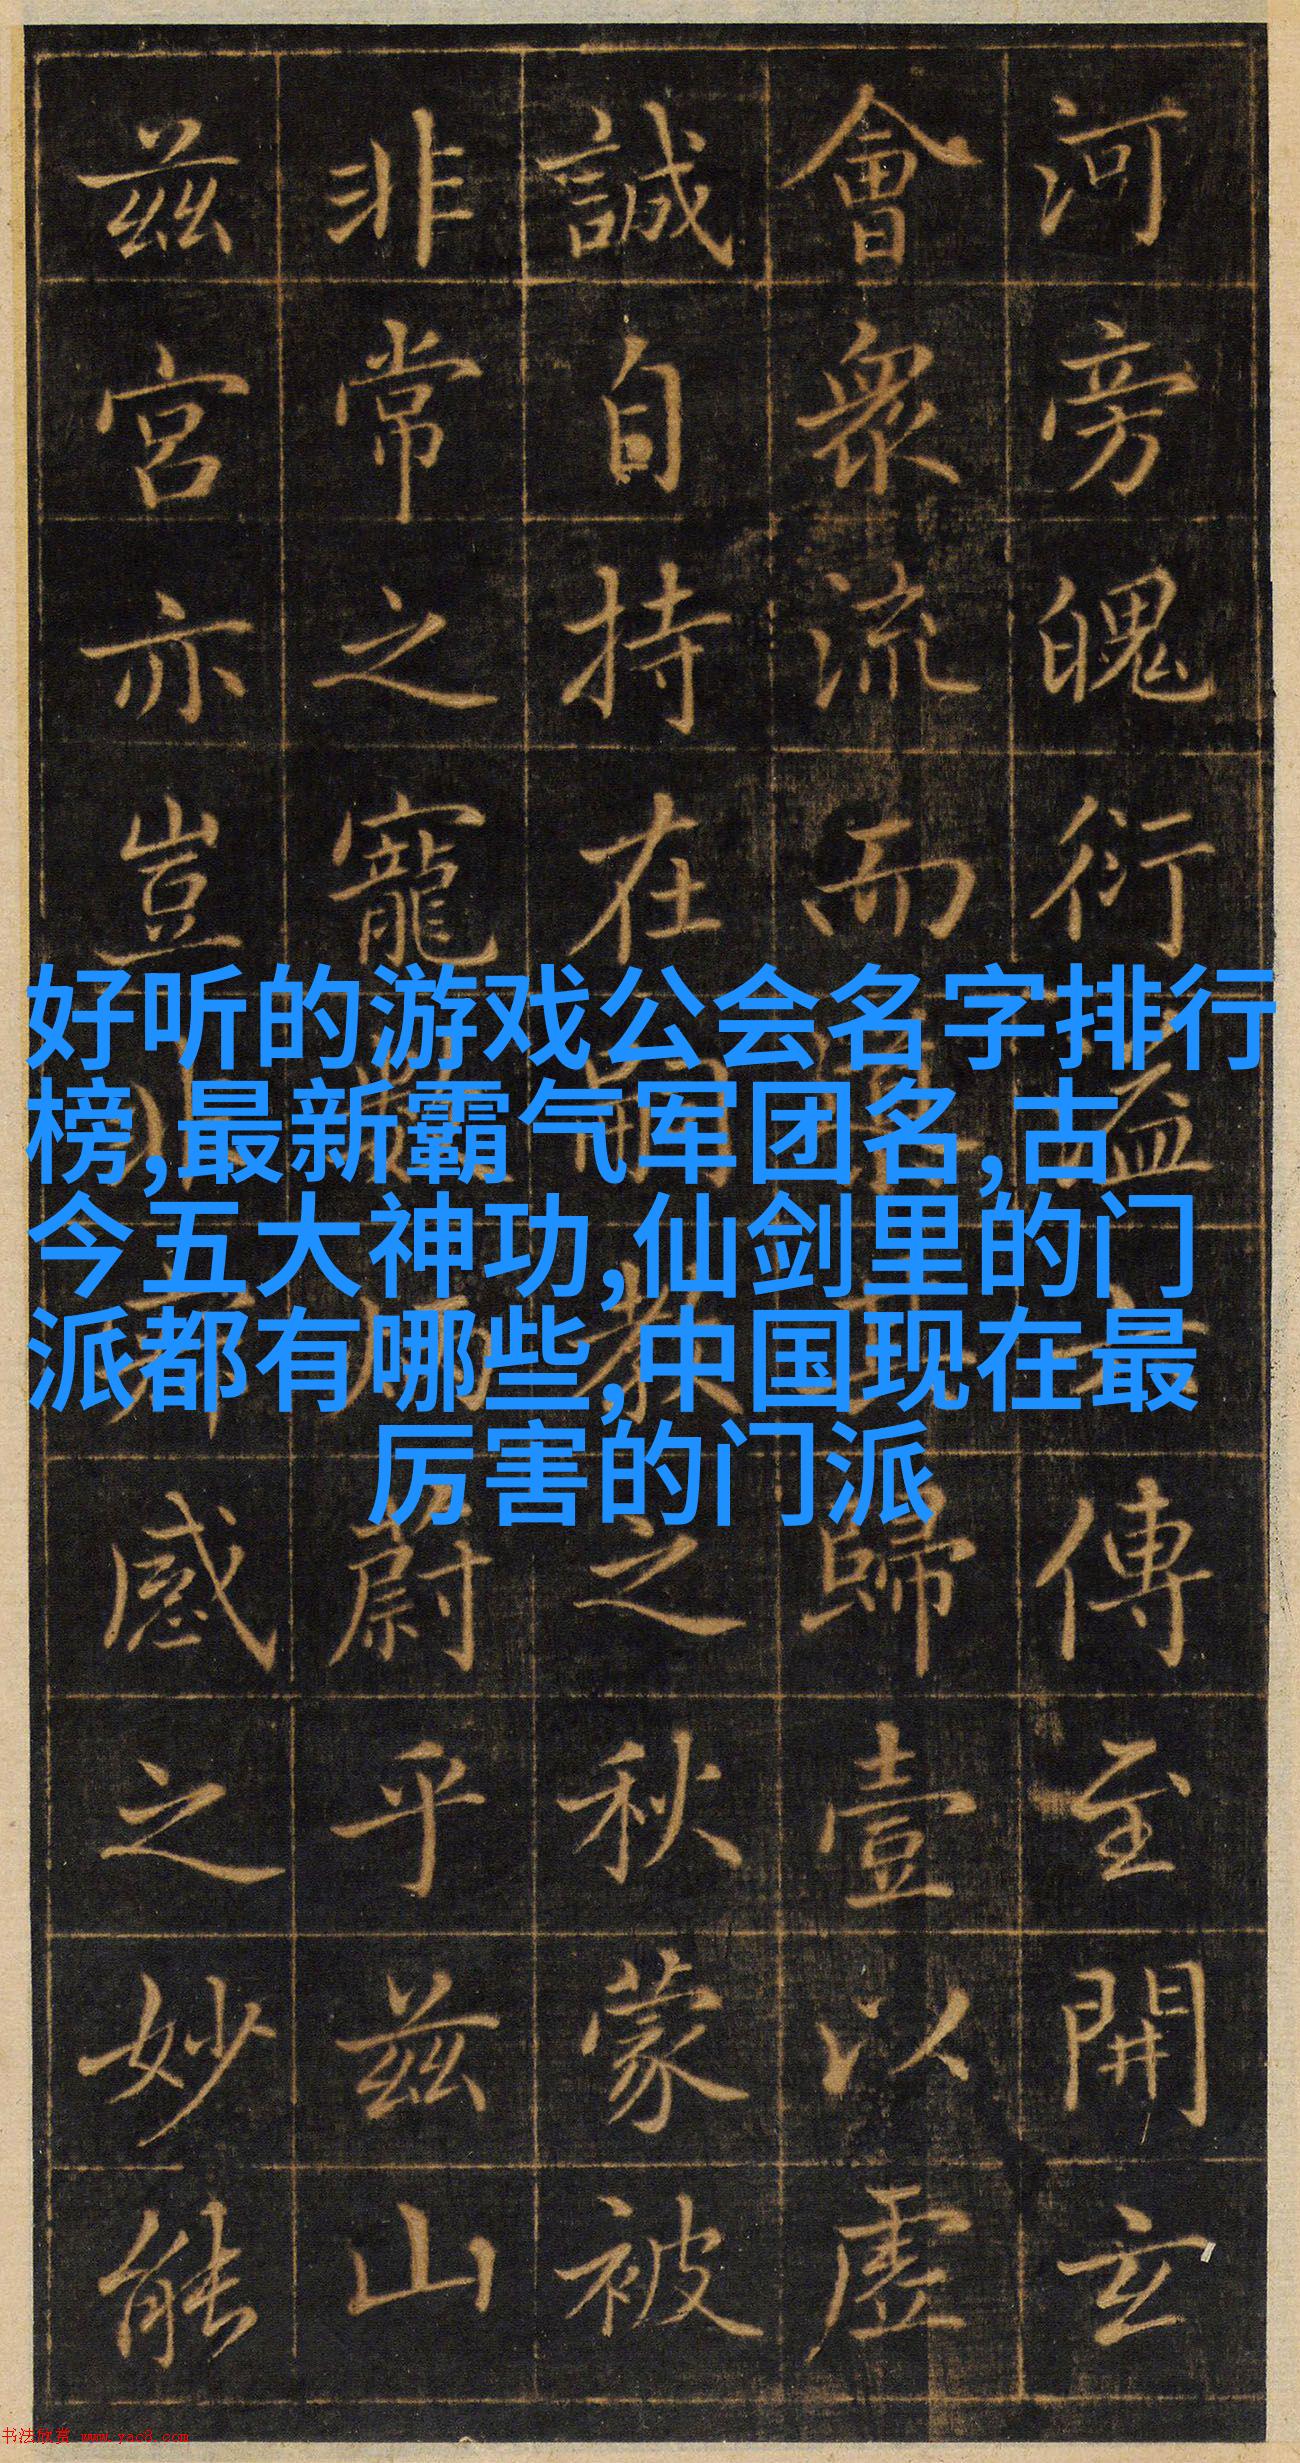 河旁魄衍溢傳至開玄
會衆流而歸壹以虚
誠自持在嗣教之秋蒙被
非常之寵蔚乎兹山
兹宮亦豈感之妙能
好听的游戏公会名字排行
榜,最新霸气军团名,古
今五大神功,仙剑里的门
派都有哪些,中国现在最
厉害的门派
书法欣赏 www.yac8.com